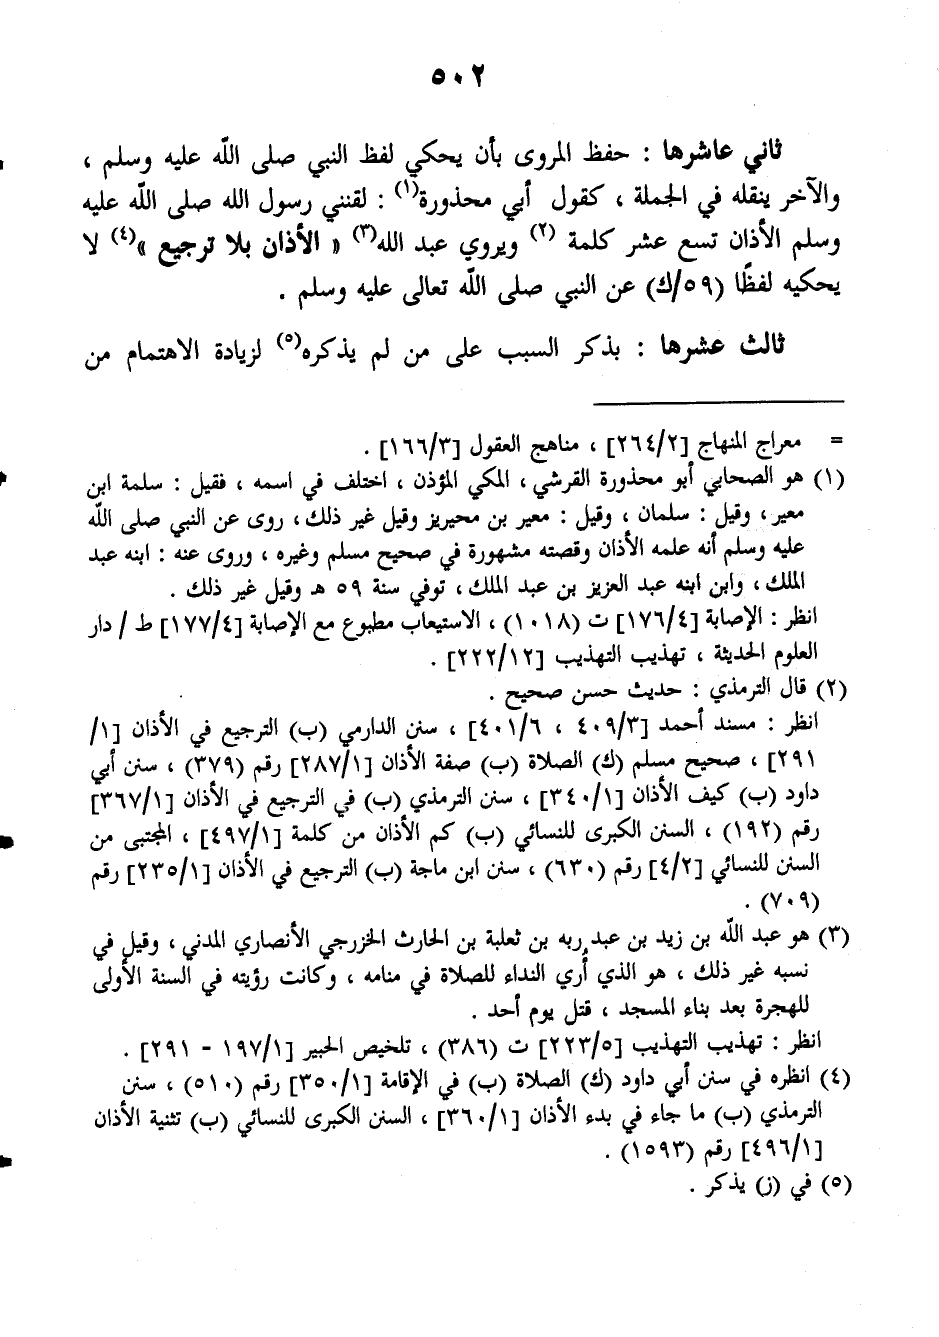 ٥٠٢
ثاني عاشرها : حفظ المروى بأن يحكي لفظ النبي صلى الله عليه وسلم ،
والآخر ينقله في الجملة ، كقول أبي محذورة(١) : لقنني رسول الله صلى الله عليه
وسلم الأذان تسع عشر كلمة (٢) ويروي عبد الله(٣) « الأذان بلا ترجيع »(٤) لا
يحكيه لفظًا (٥٩/ك) عن النبي صلى الله تعالى عليه وسلم .
ثالث عشرها : بذكر السبب على من لم يذكره(٥) لزيادة الاهتمام من
= معراج المنهاج [٢٦٤/٢] ، مناهج العقول [١٦٦/٣] .
(١) هو الصحابي أبو محذورة القرشي ، المكي المؤذن ، اختلف في اسمه ، فقيل : سلمة ابن
معير ، وقيل : سلمان ، وقيل : معير بن محيريز وقيل غير ذلك ، روى عن النبي صلى الله
عليه وسلم أنه علمه الأذان وقصته مشهورة في صحيح مسلم وغيره ، وروى عنه : ابنه عبد
الملك ، وابن ابنه عبد العزيز بن عبد الملك ، توفي سنة ٥٩ هـ وقيل غير ذلك .
انظر : الإصابة [١٧٦/٤] ت (١٠١٨) ، الاستيعاب مطبوع مع الإصابة [١٧٧/٤] ط / دار
العلوم الحديثة ، تهذيب التهذيب [٢٢٢/١٢] .
(٢) قال الترمذي : حديث حسن صحيح .
انظر : مسند أحمد [٤٠٩/٣ ، ٤٠١/٦] ، سنن الدارمي (ب) الترجيع في الأذان [١/
٢٩١] ، صحيح مسلم (ك) الصلاة (ب) صفة الأذان [٢٨٧/١] رقم (٣٧٩) ، سنن أبي
داود (ب) كيف الأذان [٣٤٠/١] ، سنن الترمذي (ب) في الترجيع في الأذان [٣٦٧/١]
رقم (١٩٢) ، السنن الكبرى للنسائي (ب) كم الأذان من كلمة [٤٩٧/١] ، المجتبى من
السنن للنسائي [٤/٢] رقم (٦٣٠) ، سنن ابن ماجة (ب) الترجيع في الأذان [٢٣٥/١] رقم
(٧٠٩) .
(٣) هو عبد الله بن زيد بن عبد ربه بن ثعلبة بن الحارث الخزرجي الأنصاري المدني ، وقيل في
نسبه غير ذلك ، هو الذي أُري النداء للصلاة في منامه ، وكانت رؤيته في السنة الأولى
للهجرة بعد بناء المسجد ، قتل يوم أحد .
انظر : تهذيب التهذيب [٢٢٣/٥] ت (٣٨٦) ، تلخيص الحبير [١٩٧/١ - ٢٩١] .
(٤) انظره في سنن أبي داود (ك) الصلاة (ب) في الإقامة [٣٥٠/١] رقم (٥١٠) ، سنن
الترمذي (ب) ما جاء في بدء الأذان [٣٦٠/١] ، السنن الكبرى للنسائي (ب) تثنية الأذان
[٤٩٦/١] رقم (١٥٩٣) .
(٥) في (ز) يذكر .